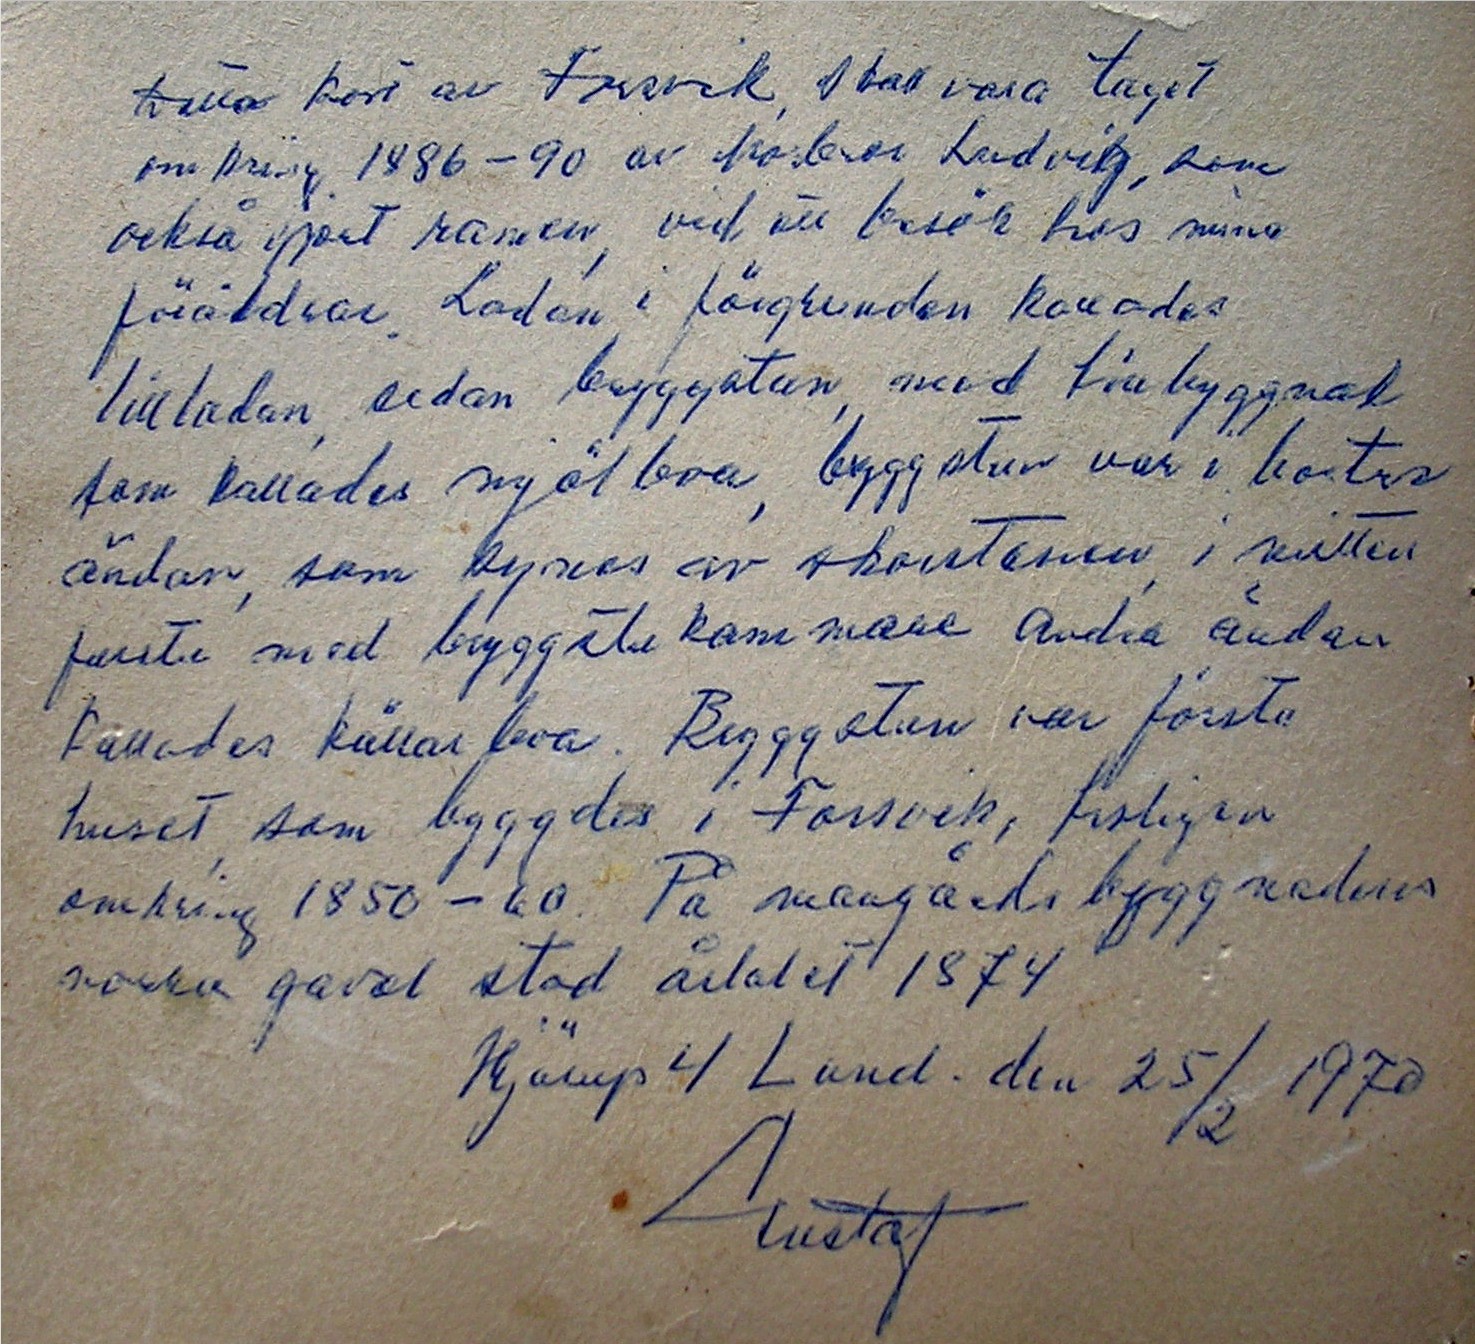 Detta kort av Forsvik, skall vara taget
omkring 1886-90 av morbror Ludvig, som
också gjort ramen, vid ett besök hos mina
föräldrar. Ladan i förgrunden kallades
lilladan, sedan byggstun, med tillbyggnad
som kallades mjölboa, byggstun var i bortre
ändan, som synes av skorstenen, i mitten
farstu med byggstukammare andra ändan
kallades källarboa. Byggstun var första
huset, som byggdes i Forsvik, troligen
omkring 1850-60. På mangårdsbyggnadens
norra gavel stod årtalet 1874
Hjärup 4 Lund. den 25/2 1970
Gustaf